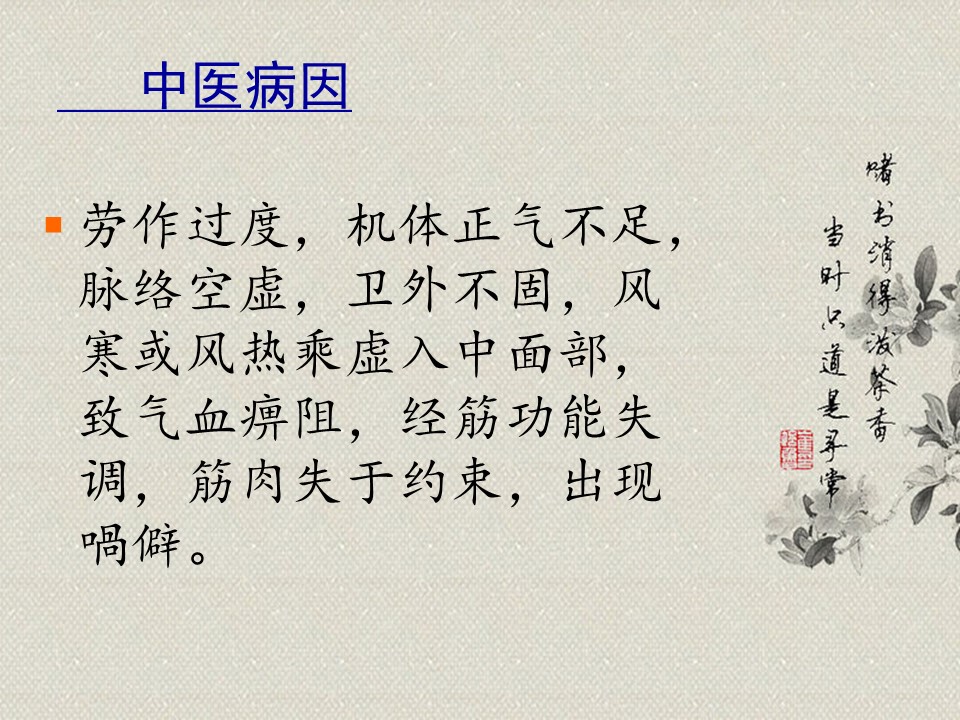 中医病因
劳作过度，机体正气不足，
脉络空虚，卫外不固，风
寒或风热乘虚入中面部，
致气血痹阻，经筋功能失
调，筋肉失于约束，出现
喎僻。
赌书消得泼茶香
当时只道是寻常